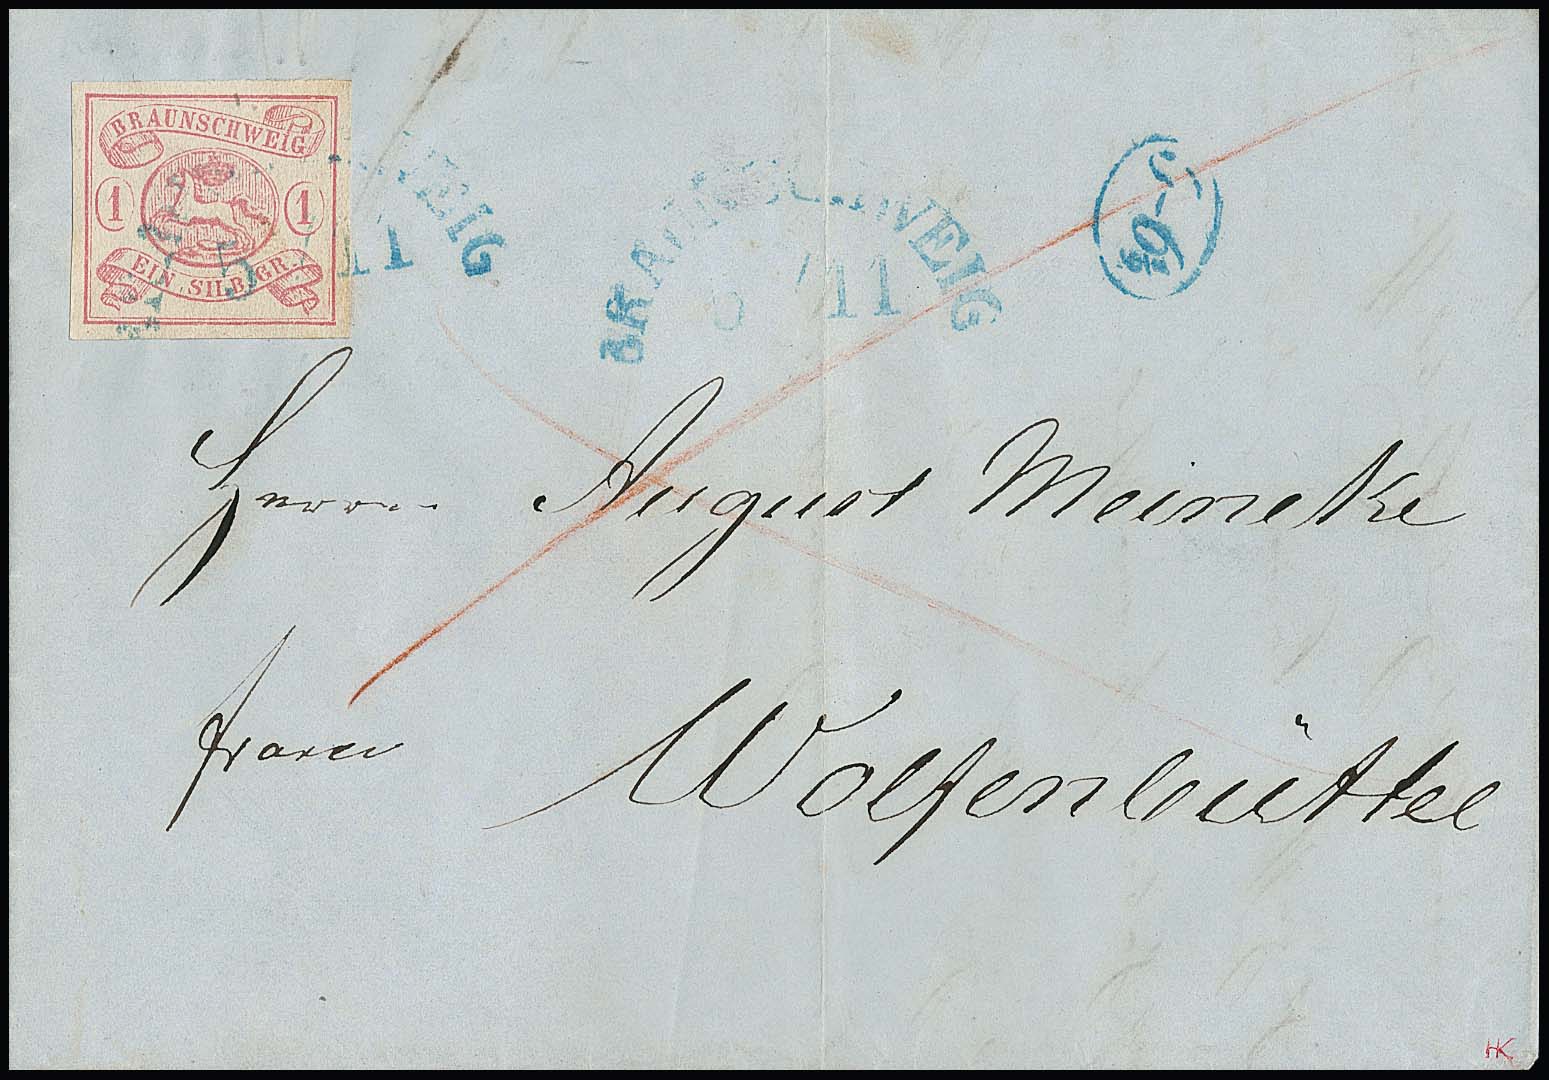 BRAUNSCHWEIG
1 1
EIN SILB.GR.
5 11
BRAUNSCHWEIG
5 11
5-6½
Herrn August Meineke
franco Wolfenbüttel
HK